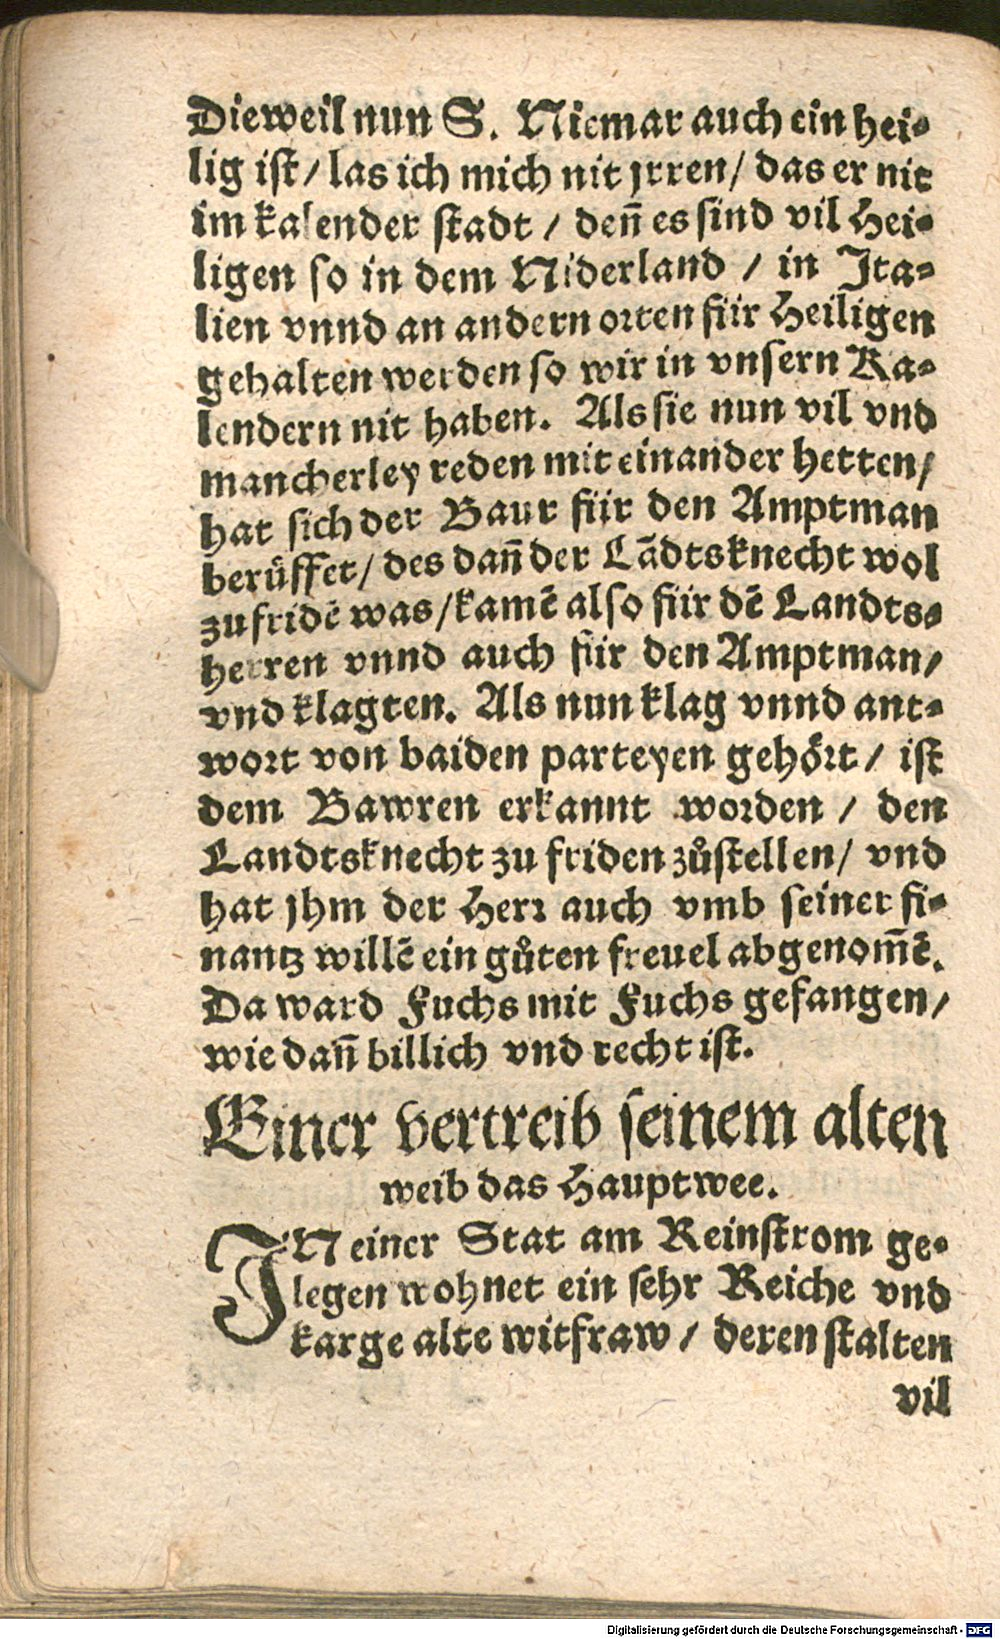 Dieweil nun S. Niemar auch ein hei⸗
lig ist / las ich mich nit jrren / das er nit
im kalender stadt / deñ es sind vil Hei⸗
ligen so in dem Niderland / in Ita⸗
lien vnnd an andern orten für Heiligen
gehalten werden so wir in vnsern Ka⸗
lendern nit haben. Als sie nun vil vnd
mancherley reden mit einander hetten /
hat sich der Baur für den Amptman
berüffet / des dañ der Lãdtsknecht wol
zufridẽ was / kamẽ also für dẽ Landts⸗
herren vnnd auch für den Amptman /
vnd klagten. Als nun klag vnnd ant⸗
wort von baiden parteyen gehört / ist
dem Bawren erkannt worden / den
Landtsknecht zu friden zůstellen / vnd
hat jhm der Herr auch vmb seiner fi⸗
nantz willẽ ein gůten freuel abgenom̃ẽ.
Da ward Fuchs mit Fuchs gefangen /
wie dañ billich vnd recht ist.
Einer vertreib seinem alten
weib das Hauptwee.
IN einer Stat am Reinstrom ge⸗
legen wohnet ein sehr Reiche vnd
karge alte witfraw / deren stalten
vil
Digitalisierung gefördert durch die Deutsche Forschungsgemeinschaft - DFG